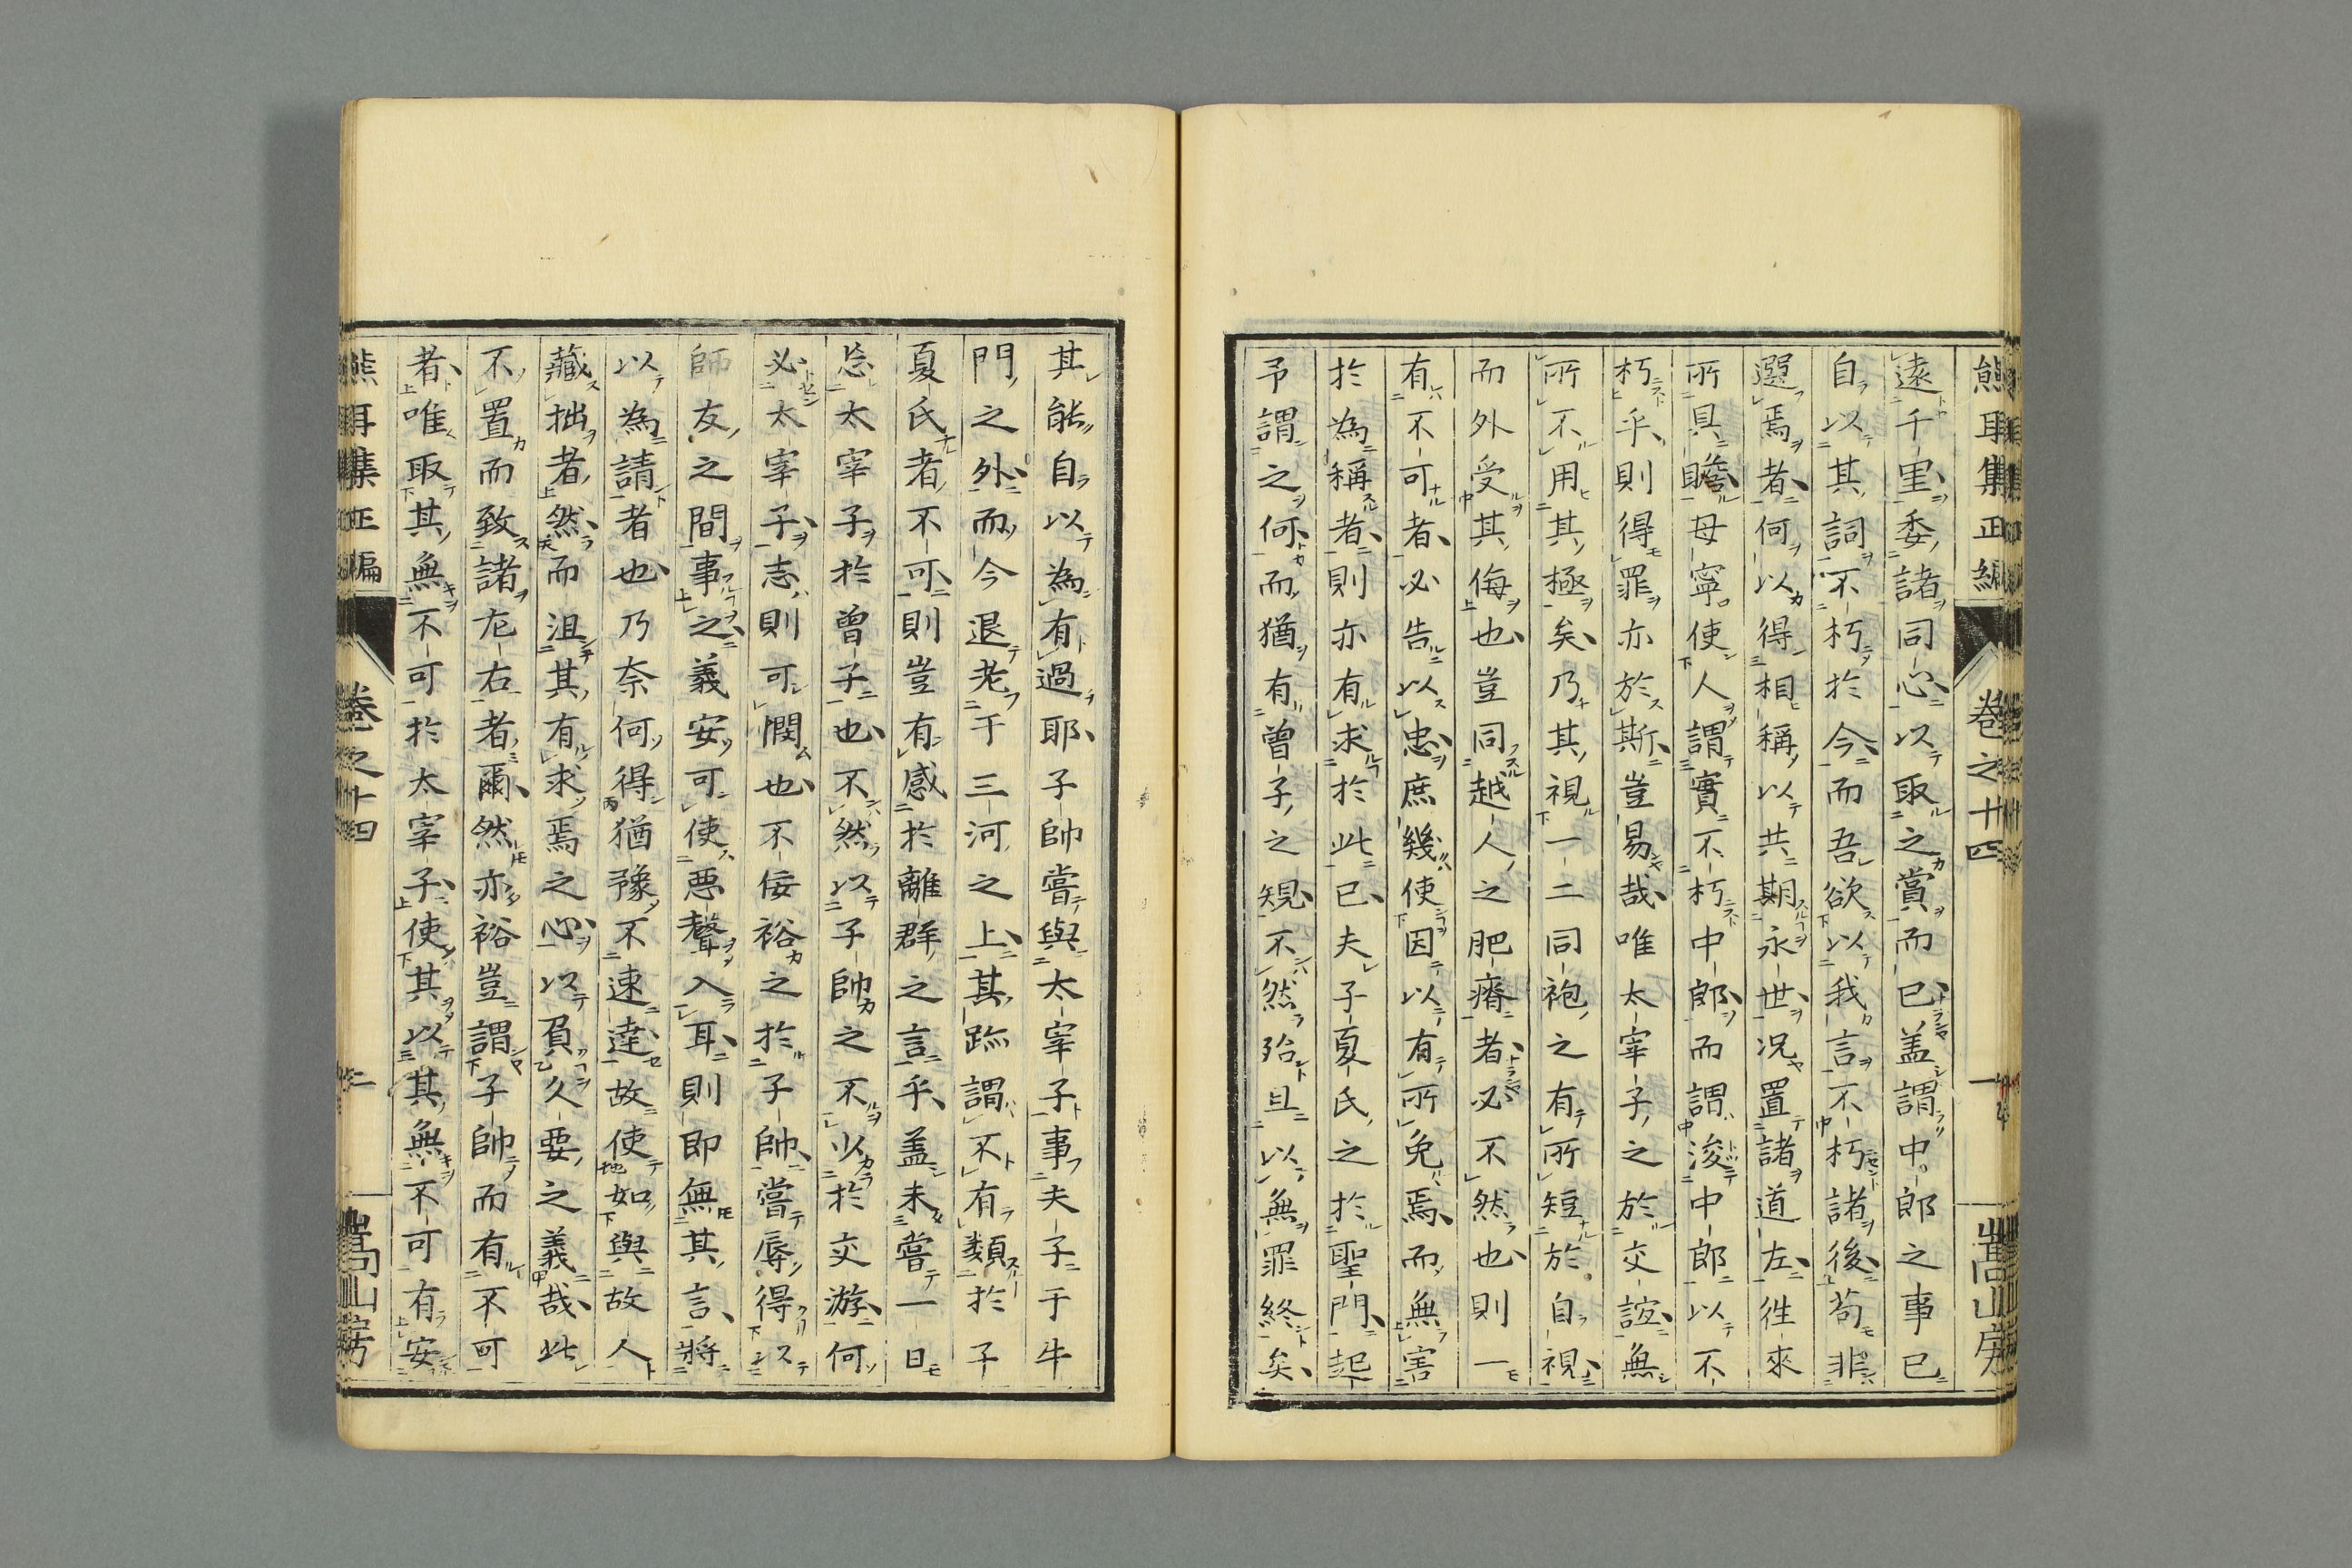 熊耳集正編 卷之十四 一 嵩山房
遠千里委諸同心以取之賞而已盖謂中郎之事已
自以其詞不朽於今而吾欲以我言不朽諸後苟非
選焉者何以得相稱以共期永世况置諸道左徃來
所具瞻毋寧使人謂實不朽中郎而謂浚中郎以不
朽乎則得罪亦於斯豈易哉唯太宰子之於交誼無
所不用其極矣乃其視一二同袍之有所短於自視
而外受其侮也豈同越人之肥瘠者必不然也則一
有不可者必告以忠庶幾使因以有所免焉而無害
於為稱者則亦有求於此已夫子夏氏之於聖門起
予謂之何而猶有曾子之規不然殆且以無罪終矣
其能自以為有過耶子帥嘗與太宰子事夫子于牛
門之外而今退老于三河之上其跡謂不有類於子
夏氏者不可則豈有感於離群之言乎盖未嘗一日
忘太宰子於曾子也不然以子帥之不以於交游何
必太宰子志則可憫也不佞裕之於子帥嘗辱得以
師友之間事之義安可使惡聲入耳則即無其言將
以為請者也乃奈何得猶豫不速達故使如與故人
藏拙者然而沮其有求焉之心以負久要之義哉此
不置而致諸左右者爾然亦裕豈謂子帥而有不可
者唯取其無不可於太宰子使其以其無不可有安
熊耳集正編 卷之十四 二 嵩山房